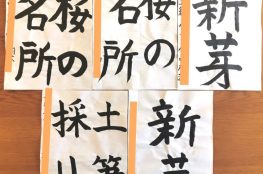 桜の
名所
桜の
名所
新芽
土筆
採り
新芽